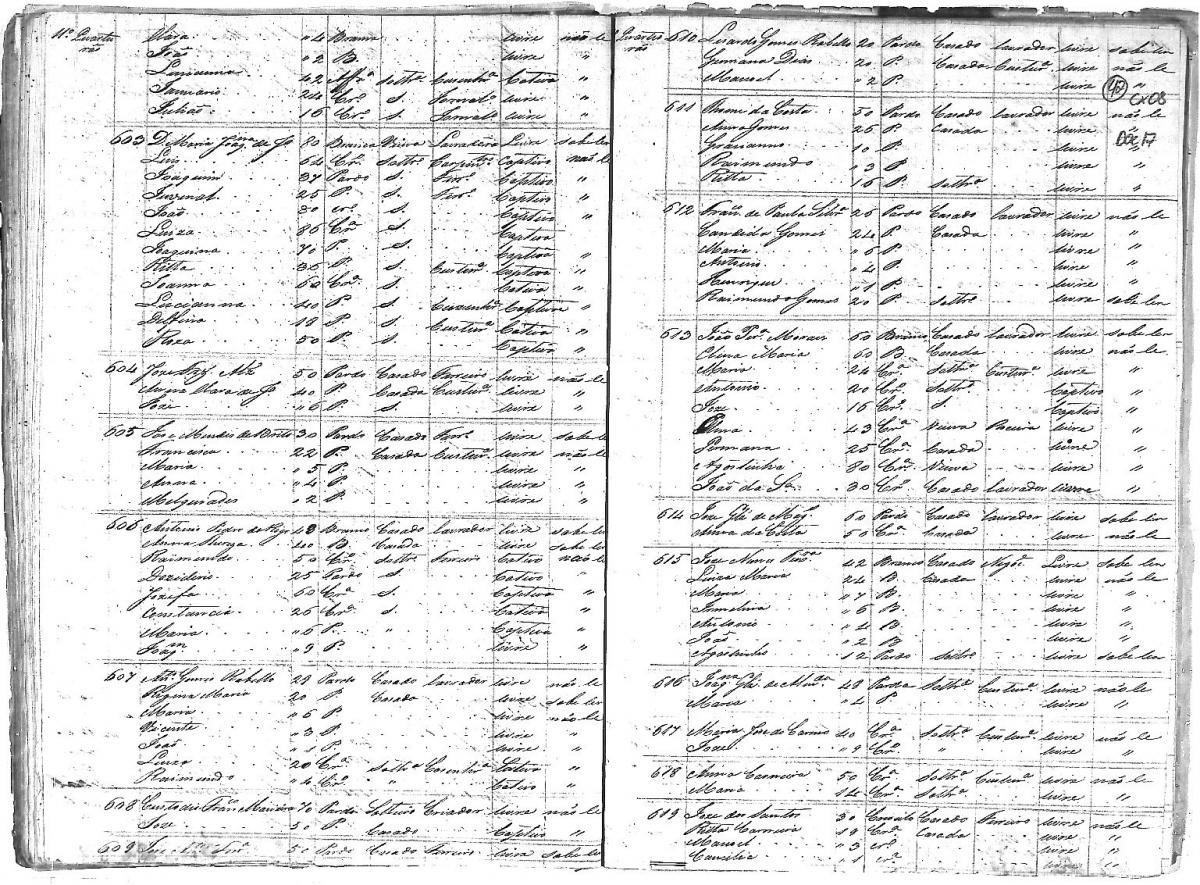 Nº Quarteirão Clara 4 Branca livre não le
João 2 B. livre "
Luiciana 42 Affª Soltrª Cusenhª Cativa "
Januario 24 Crº S. Jornalº livre "
Julião 16 Crº S. Jornalº livre "
603 D. Maria 80 Branca Viuva Livre sabe ler
Luis 64 Crº Soltrº Carpintº Captivo não le
Joaquim 37 Pardo S. Ferrº Captivo "
Juvenal 25 P. S. Ferrº Captivo "
João 30 crº S. Captivo "
Luiza 86 Crª S. Captiva
Joaquina 70 P. S. Captiva "
Ritta 36 P. S. Custurª Captiva "
Joanna 60 Crª S. Cativa "
Lusciana 40 P. S. Cusenhª Captiva "
Delfina 19 P. S. Custurª Cativa "
Roza 50 P. S. Captiva "
604 Joze 50 Pardo Cazado Ferreiro livre não le
40 P. Cazada Custurª livre "
Joze 6 P. livre "
605 Joze Mendes de Britto 30 Pardo Casado Ferrº livre sabe ler
Francisca 22 P. Casada Custurª livre não le
Maria 5 P. livre "
Anna 4 P. livre "
Melquiades 2 P. livre "
606 Antonio Pedro 43 Branco Casado lavrador livre sabe ler
Anna 40 B. Casada livre sabe ler
Raimundo 50 Crº Soltrº Ferreiro Cativo não le
Deziderio 25 Pardo S. Cativo "
Jozefa 60 Crª S. Captiva
Constancia 26 Crª S. Cativa "
Maria 5 P. " Captiva "
Joaqm 9 P. livre "
607 Anº Gomes Rabello 29 Pardo Casado lavrador livre não le
Regina Maria 20 P. Casada livre sabe ler
Maria 6 P. livre não le
Vicente 3 P. livre "
João 1 P. livre "
Luiza 20 Crª Soltrª Cosenhrª Cativa "
Raimundo 4 Crº Cativo "
608 Custodio Franco 70 Pardo Solteiro Criador livre não le
Joze 50 P. Casado Captivo "
609 Joze 50 Pardo Casado Ferreiro livre sabe ler
Quarteirão 610 Lisardo Gomes Rabello 20 Pardo Casado lavrador livre sabe ler
Germana Dias 20 P. Casada Custurª livre não le
Manoel 2 P. livre "
42 CX 08
DOC 17
611 da Costa 50 Pardo Casado lavrador livre não le
Anna Gomes 26 P. Casada livre "
Gracianno 10 P. livre "
Raimundo 3 P. livre "
Ritta 16 P. Soltrª livre "
612 Franco de Paula Silvª 26 Pardo Casado lavrador livre não le
Candida Gomes 24 P. Casada livre "
Maria 6 P. livre "
Antonio 4 P. livre "
Henrique 1 P. livre "
Raimundo Gomes 20 P. Soltrº livre sabe ler
613 João Perª Moraes 60 Branco Casado lavrador livre sabe ler
Clara Maria 60 B. Casada livre não le
Maria 24 Crª Soltrª Custurª livre "
Antonio 20 Crº Soltrº Captivo "
Joze 16 Crº S. Captivo "
Anna 43 Crª Viuva livre "
Germana 25 Crª Casada livre "
Agostinha 80 Crª Viuva livre "
João da Sª 30 Crº Casado lavrador livre "
614 Joze 60 Pardo Casado lavrador livre sabe ler
Anna da Costa 50 Crª Casada livre não le
615 Joze Nunes 42 Branco Casado Negº Livre sabe ler
Luiza Maria 24 B. Casada livre não le
Maria 7 B. livre "
6 B. livre "
Antonio 4 B. livre "
João 2 B. livre "
Agostinho 12 Pardo Soltrº livre sabe ler
616 Joaqna 48 Parda Soltrª Custurª livre não le
Maria 4 P. livre "
617 Maria Joze do Carmo 40 Crª Soltrª Custurª livre não le
Joze 9 Crº " livre "
618 Anna Carneira 50 Crª Soltrª Custurª livre não le
Maria 14 Crª Soltrª livre "
619 Joze dos Santos 30 Casado Ferreiro livre não le
Ritta Carneira 19 Crª Casada livre "
Manoel 3 crº livre "
1 crª livre "